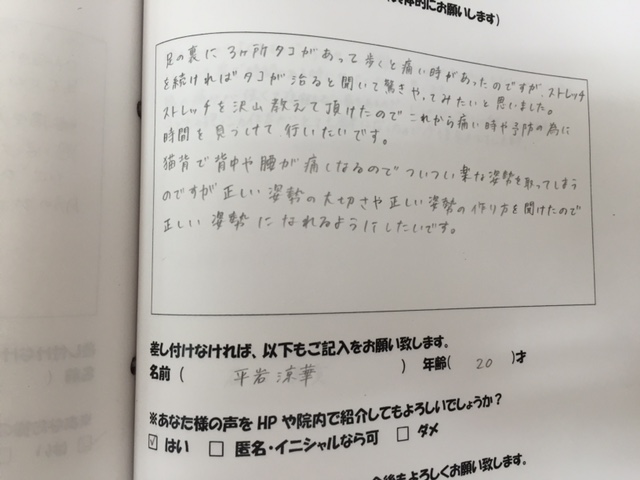 体的にお願いします)
足の裏に3ヶ所タコがあって歩くと痛い時があったのですが、ストレッチ
を続ければタコが治ると聞いて驚きやってみたいと思いました。
ストレッチを沢山教えて頂けたのでこれから痛い時や予防の為に
時間を見つけて行いたいです。
猫背で背中や腰が痛くなるのでついつい楽な姿勢を取ってしまう
のですが正しい姿勢の大切さや正しい姿勢の作り方を聞けたので
正しい姿勢になれるようにしたいです。
差し付けなければ、以下もご記入をお願い致します。
名前 ( 平岩 涼華 ) 年齢( 20 )才
※あなた様の声をHPや院内で紹介してもよろしいでしょうか?
☑ はい □ 匿名・イニシャルなら可 □ ダメ
よろしくお願い致します。